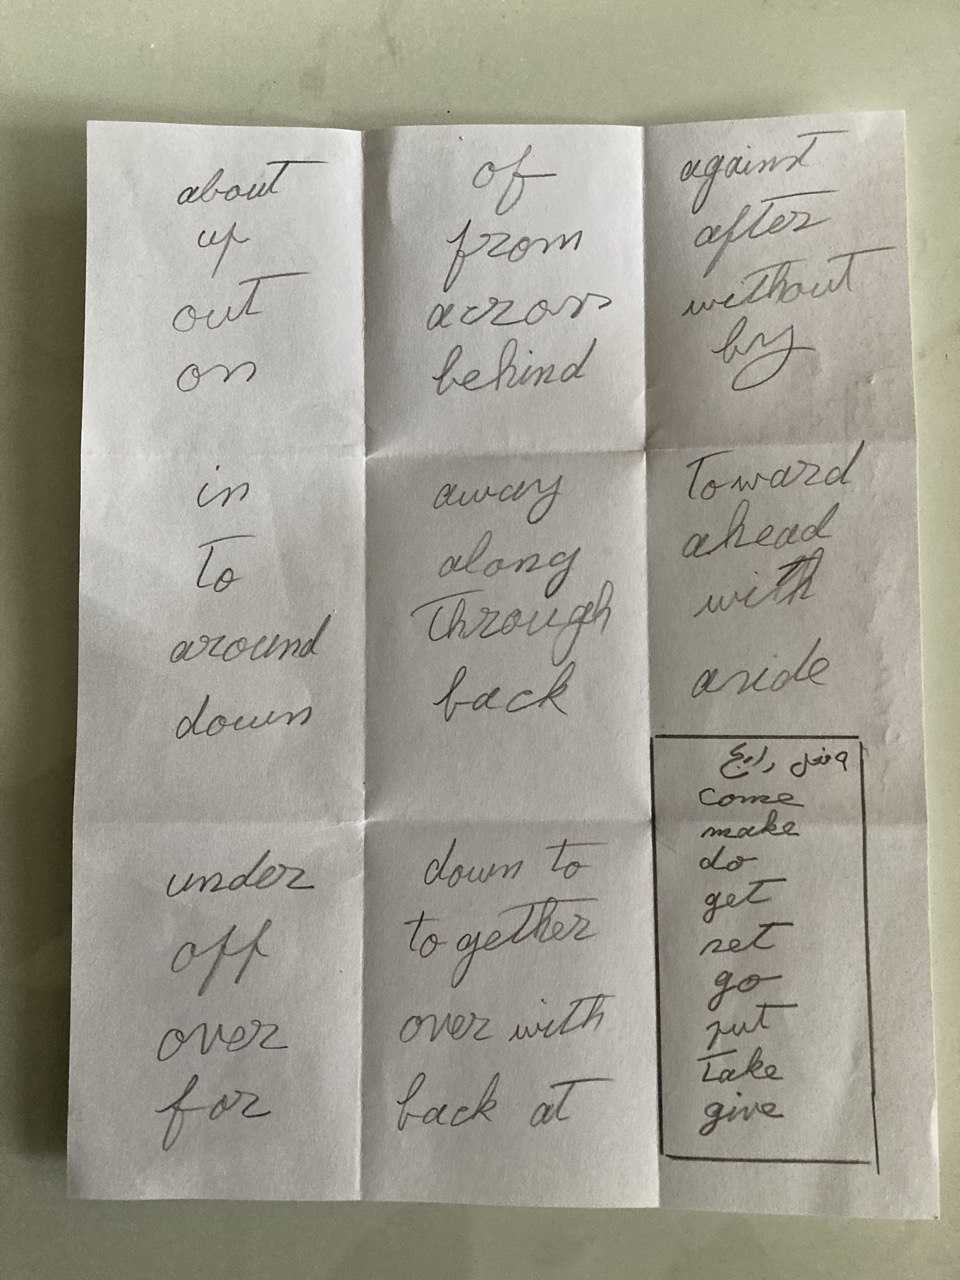 about
up
out
on
in
To
around
down
under
off
over
for
of
from
across
behind
away
along
Through
back
down to
together
over with
back at
against
after
without
by
Toward
ahead
with
aside
۹ فعل رایج
come
make
do
get
set
go
put
Take
give